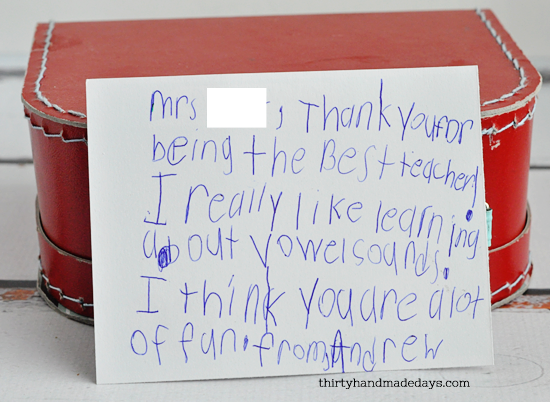 mrs , Thank you for
being the Best teacher!
I really like learning
about vowel sounds.
I think you are a lot
of fun. from, Andrew
thirtyhandmadedays.com